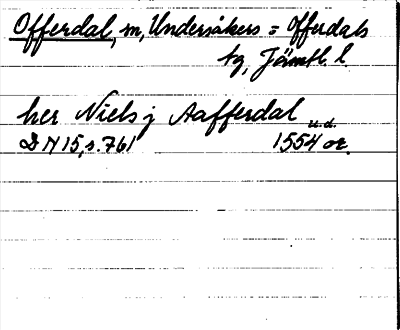 Offerdal, m, Undersåkers = Offerdals
tg, Jämtl. l.
her Niels j Aafferdal
u.d.
D N 15, s. 761 1554 or.